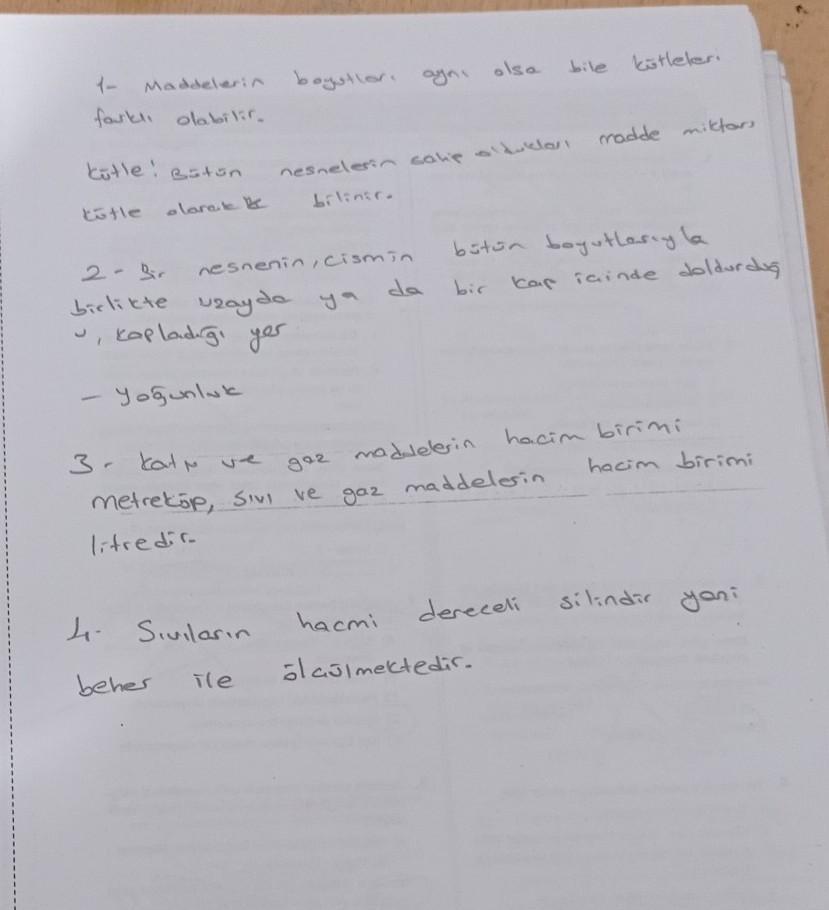 1- Maddelerin boyutları aynı olsa bile kütleleri
farklı olabilir.
Kütle: Bütün nesnelerin sahip oldukları madde miktarı
kütle olarak bilinir.
2- Bir nesnenin, cismin bütün boyutlarıyla
birlikte uzayda ya da bir kap içinde doldurduğ
u, kapladığı yer
- Yoğunluk
3- Katı ve gaz maddelerin hacim birimi
metreküp, sıvı ve gaz maddelerin hacim birimi
litredir.
4- Sıvıların hacmi dereceli silindir yani
beher ile ölçülmektedir.